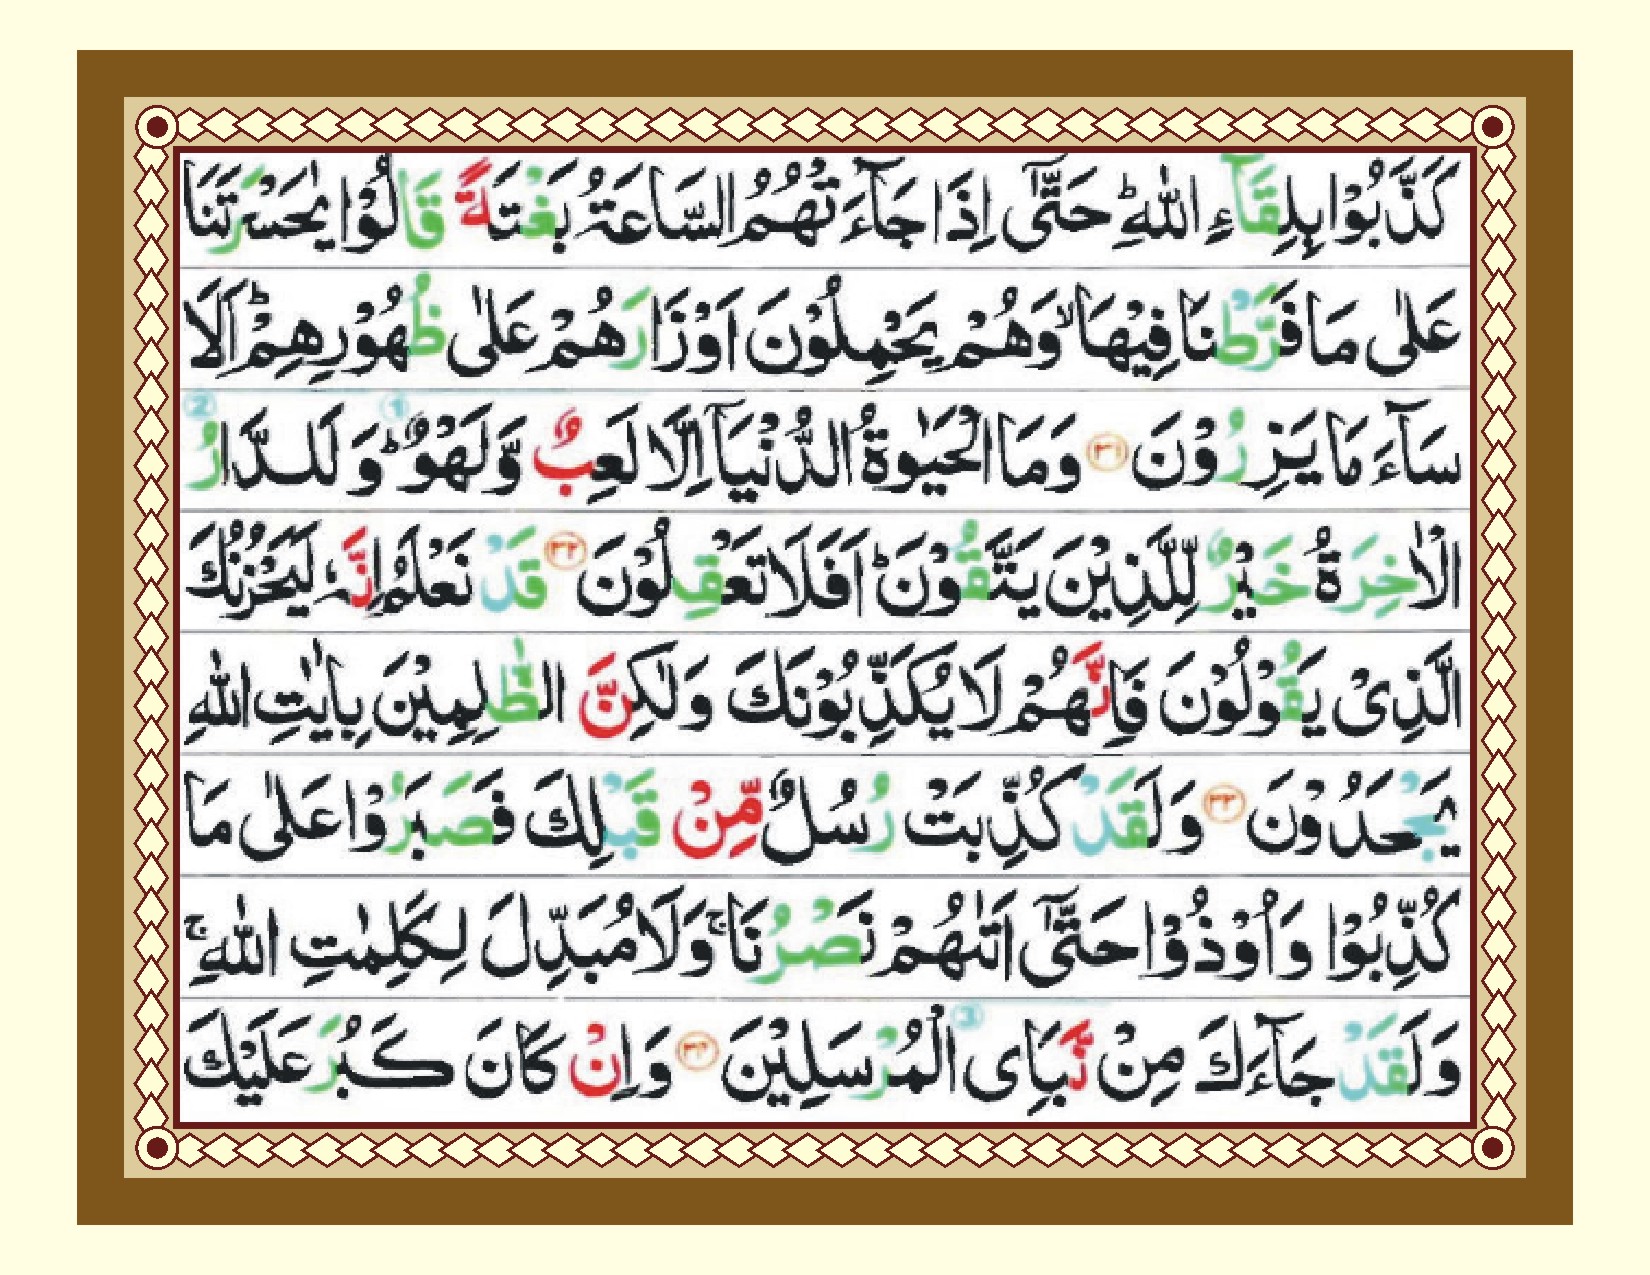 كَذَّبُوْا بِلِقَآءِ اللّٰهِؕ حَتّٰۤى اِذَا جَآءَتْهُمُ السَّاعَةُ بَغْتَةً قَالُوْا يٰحَسْرَتَنَا
عَلٰى مَا فَرَّطْنَا فِيْهَاۙ وَهُمْ يَحْمِلُوْنَ اَوْزَارَهُمْ عَلٰى ظُهُوْرِهِمْؕ اَلَا
سَآءَ مَا يَزِرُوْنَ ۝۳۱ وَمَا الْحَيٰوةُ الدُّنْيَاۤ اِلَّا لَعِبٌ وَّلَهْوٌؕ 1 وَلَلدَّارُ 2
الْاٰخِرَةُ خَيْرٌ لِّلَّذِيْنَ يَتَّقُوْنَؕ اَفَلَا تَعْقِلُوْنَ ۝۳۲ قَدْ نَعْلَمُ اِنَّهٗ لَيَحْزُنُكَ
الَّذِىْ يَقُوْلُوْنَ فَاِنَّهُمْ لَا يُكَذِّبُوْنَكَ وَلٰكِنَّ الظّٰلِمِيْنَ بِاٰيٰتِ اللّٰهِ
يَجْحَدُوْنَ ۝۳۳ وَلَقَدْ كُذِّبَتْ رُسُلٌ مِّنْ قَبْلِكَ فَصَبَرُوْا عَلٰى مَا
كُذِّبُوْا وَاُوْذُوْا حَتّٰۤى اَتٰىهُمْ نَصْرُنَاۚ وَلَا مُبَدِّلَ لِكَلِمٰتِ اللّٰهِۚ
وَلَقَدْ جَآءَكَ مِنْ نَّبَاِى 3 الْمُرْسَلِيْنَ ۝۳۴ وَاِنْ كَانَ كَبُرَ عَلَيْكَ